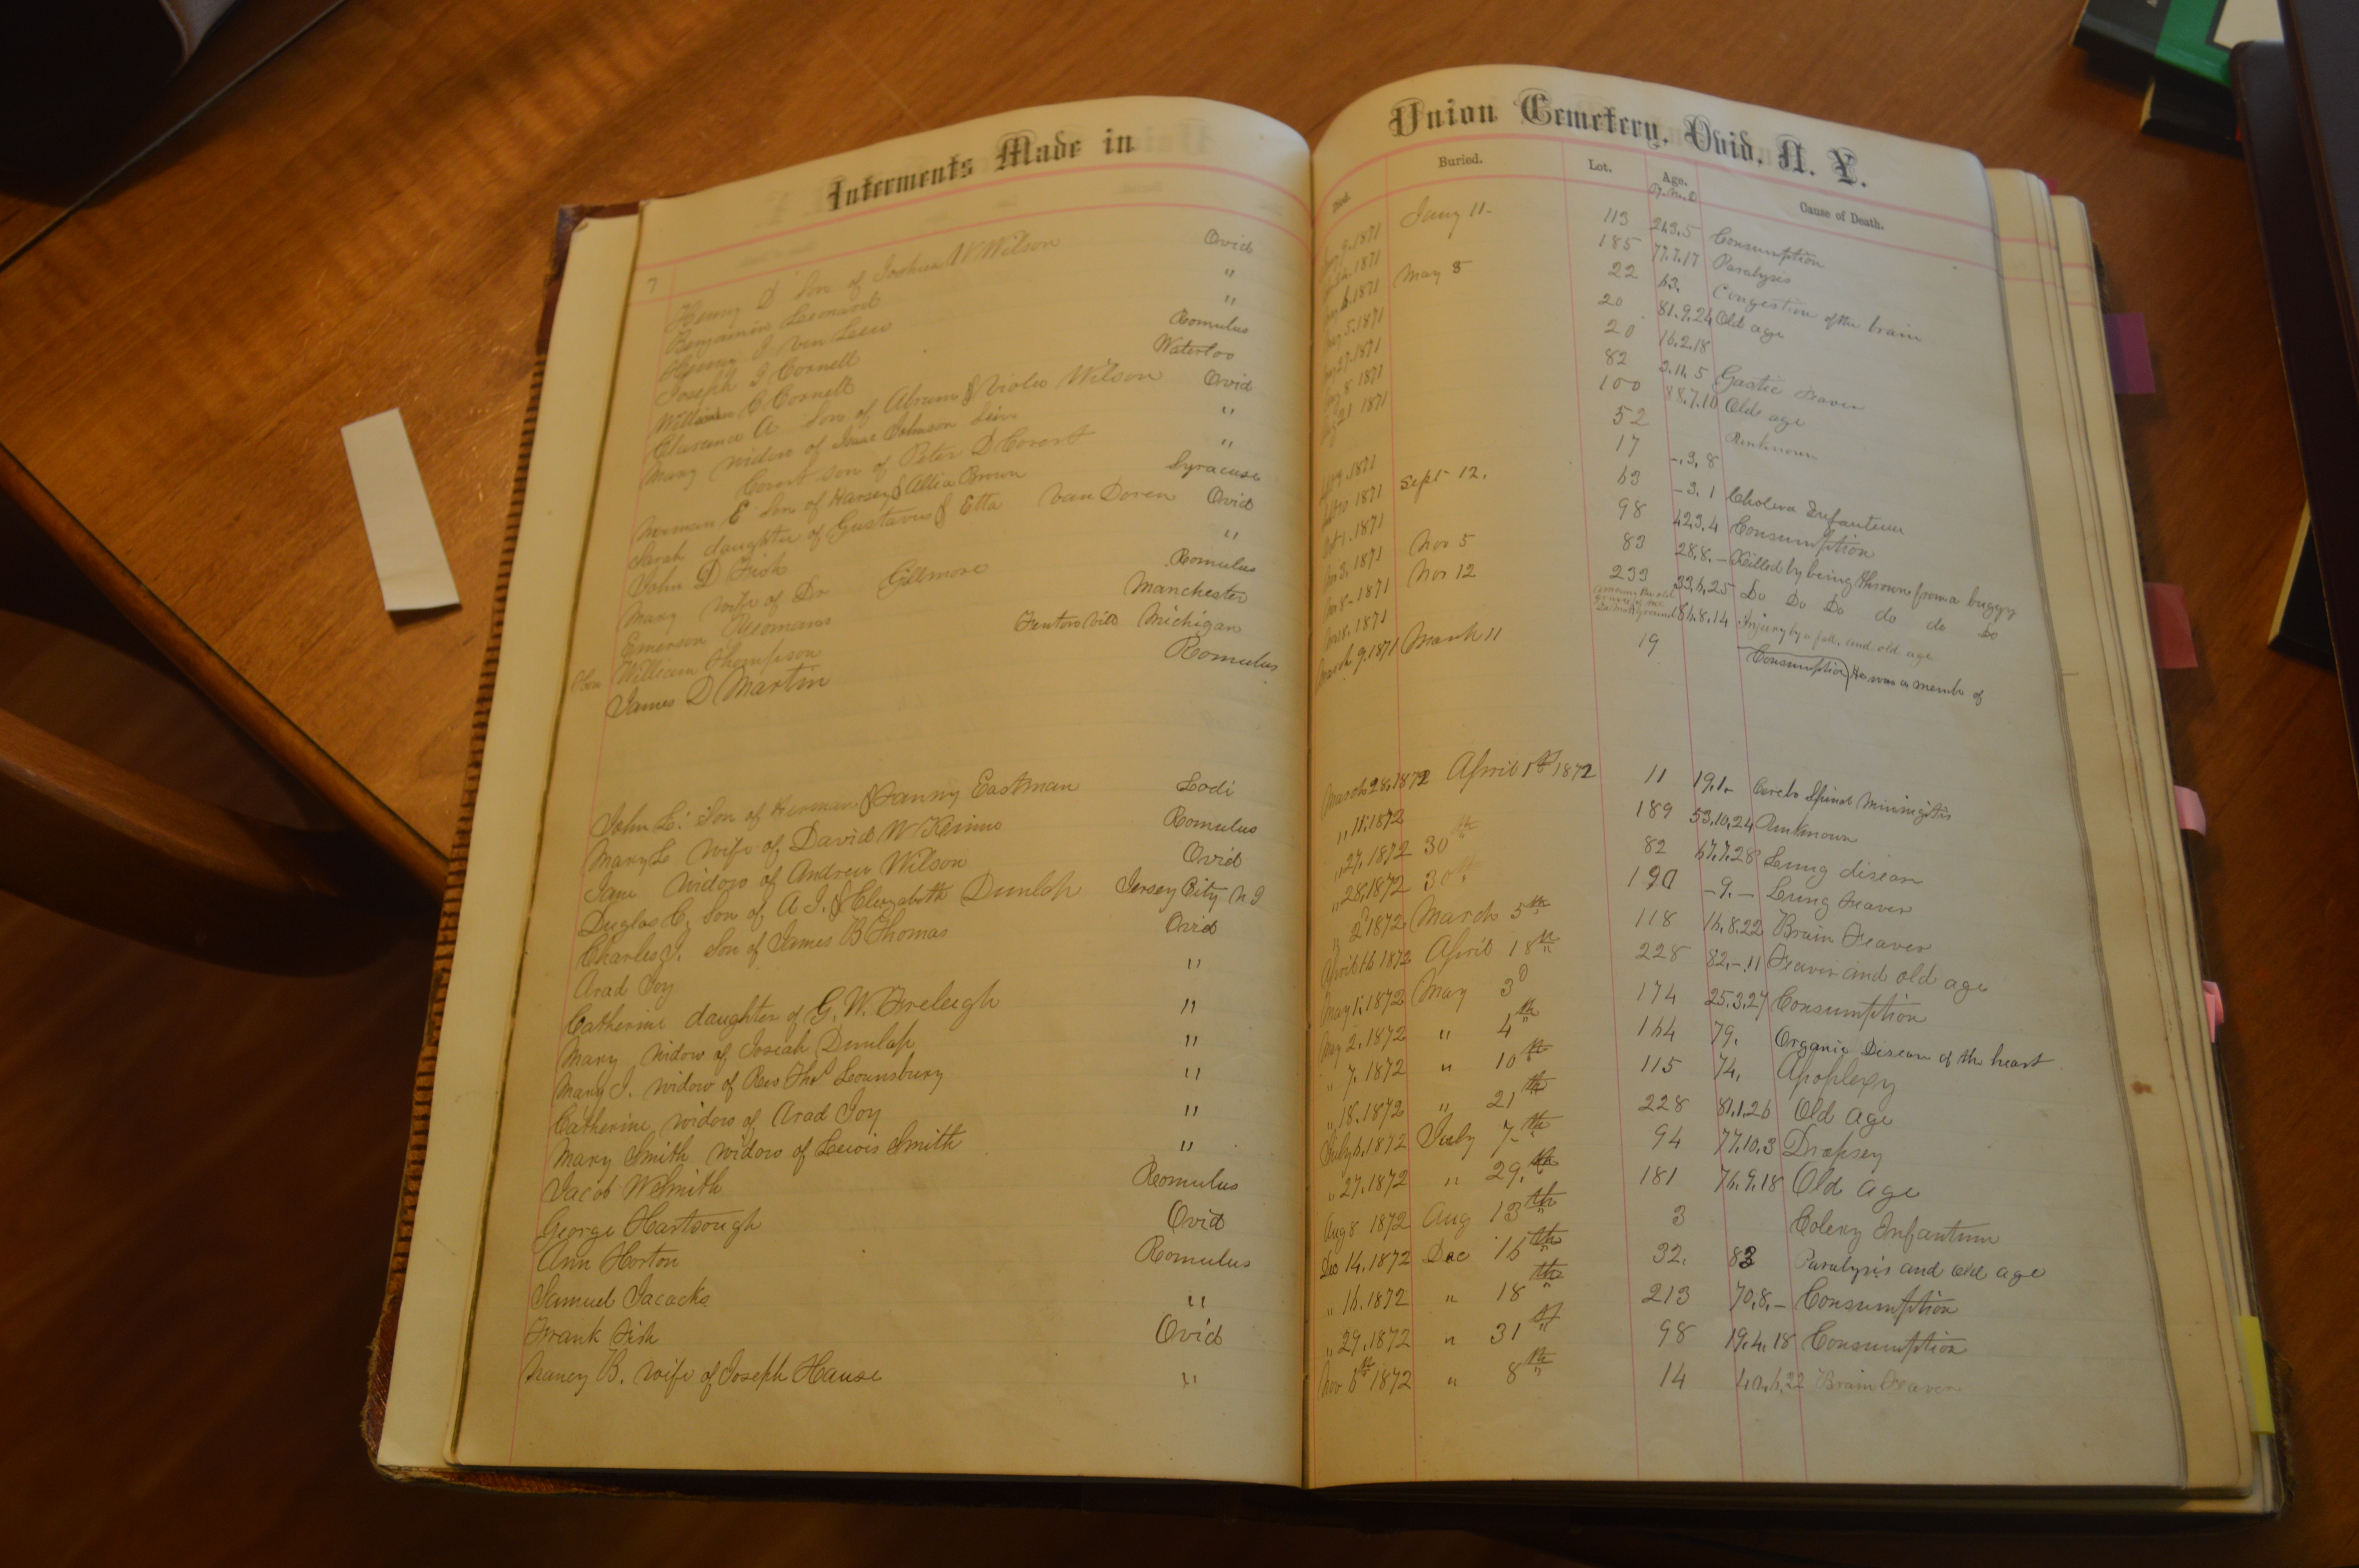 Interments Made in
7
Henry D Son of Joshua W Wilson Ovid
Benjamin Leonard "
Henry J. Van Lew "
Joseph J Cornell Romulus
William C Cornell Waterloo
Clarence A Son of Abram & Violee Wilson Ovid
Mary widow of Isaac Johnson "
Covert son of Peter D Covert "
Herman E Son of Harsey & Allia Brown Syracuse
Sarah daughter of Gustavus & Etta Van Doren Ovid
John D Fish "
Mary wife of Dr Gillmore Romulus
Emerson Yeomans Manchester
William Thompson Fentonville Michigan
James D Martin Romulus
John L. Son of Herman & Fanny Eastman Lodi
Mary L wife of David W Kinne Romulus
Jane widow of Andrew Wilson Ovid
Duglas C, Son of A J. & Elizabeth Dunlap Jersey City N J
Charles J. Son of James B Thomas Ovid
Arad Joy "
Catherine daughter of G. W. Freleigh "
Mary widow of Josiah Dunlap "
Mary J. widow of Rev Thos Lounsbury "
Catherine, widow of Arad Joy "
Mary Smith widow of Lewis Smith "
Jacob W Smith Romulus
George Hartsough Ovid
Ann Horton Romulus
Samuel Jacacks "
Frank Fish Ovid
Nancy B. wife of Joseph Hause "
Union Cemetery, Ovid, N. Y.
Died. Buried. Lot. Age. Cause of Death.
Y. M. D
1871 Jany 11- 113 Consumption
1871 185 77.7.17 Paralysis
1871 May 8 22 63. Congestion of the brain
1871 20 81.9.24 Old age
1871 20 16.2.18
1871 82 3.11.5 Gastic Feaver
21 1871 100 88.7.10 Old age
52 Unknown
1871 17 -.3,8
1871 Sept 12. 63 -3.1 Cholera Infanteum
Oct 1. 1871 98 42.3.4 Consumption
1871 Nov 5 83 28.8.- Killed by being thrown from a buggy
8-1871 Nov 12 233 33.6.25 Do Do Do do do do
1871 86.8.14 Injury by a fall, and old age
March 9.1871 March 11 19 Consumption He was a membe of
March 28.1872 April 1st 1872 11 19.1.- Cerebo Spinal Miningitis
" 11.1872 189 53.10.24 Unknown
" 27.1872 30th 82 67.7.28 Lung disease
" 28.1872 30th 190 -9.- Lung Feaver
" 2d 1872 March 5th 118 16.8.22 Brain Feaver
April 16 1872 April 18th 228 82.-.11 Feaver and old age
May 1.1872 May 3d 174 25.3.27 Consumption
May 2.1872 " 4th 164 79. Organic Disease of the heart
" 7.1872 " 10th 115 74, Apoplexy
" 18.1872 " 21th 228 81.1.26 Old age
July 6.1872 July 7th 94 77.10.3 Dropsey
" 27.1872 " 29.th 181 76.9.18 Old age
Aug 8 1872 Aug 13th 3 Colery Infantum
Dec 14.1872 Dec 16th 32. 83 Paralysis and old age
" 16.1872 " 18th 213 70.8.- Consumption
" 29.1872 " 31st 98 19.4.18 Consumption
Nov 6th 1872 " 8th 14 Brain Feaver